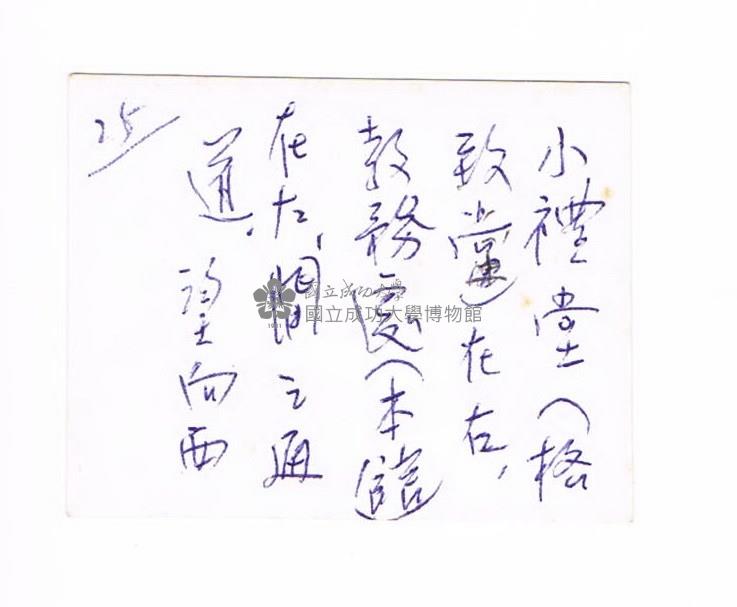 25
小禮堂(格
致堂)在右,
教務處(本館)
在左,間之通
道,望向西
國立成功大學
國立成功大學博物館
1931